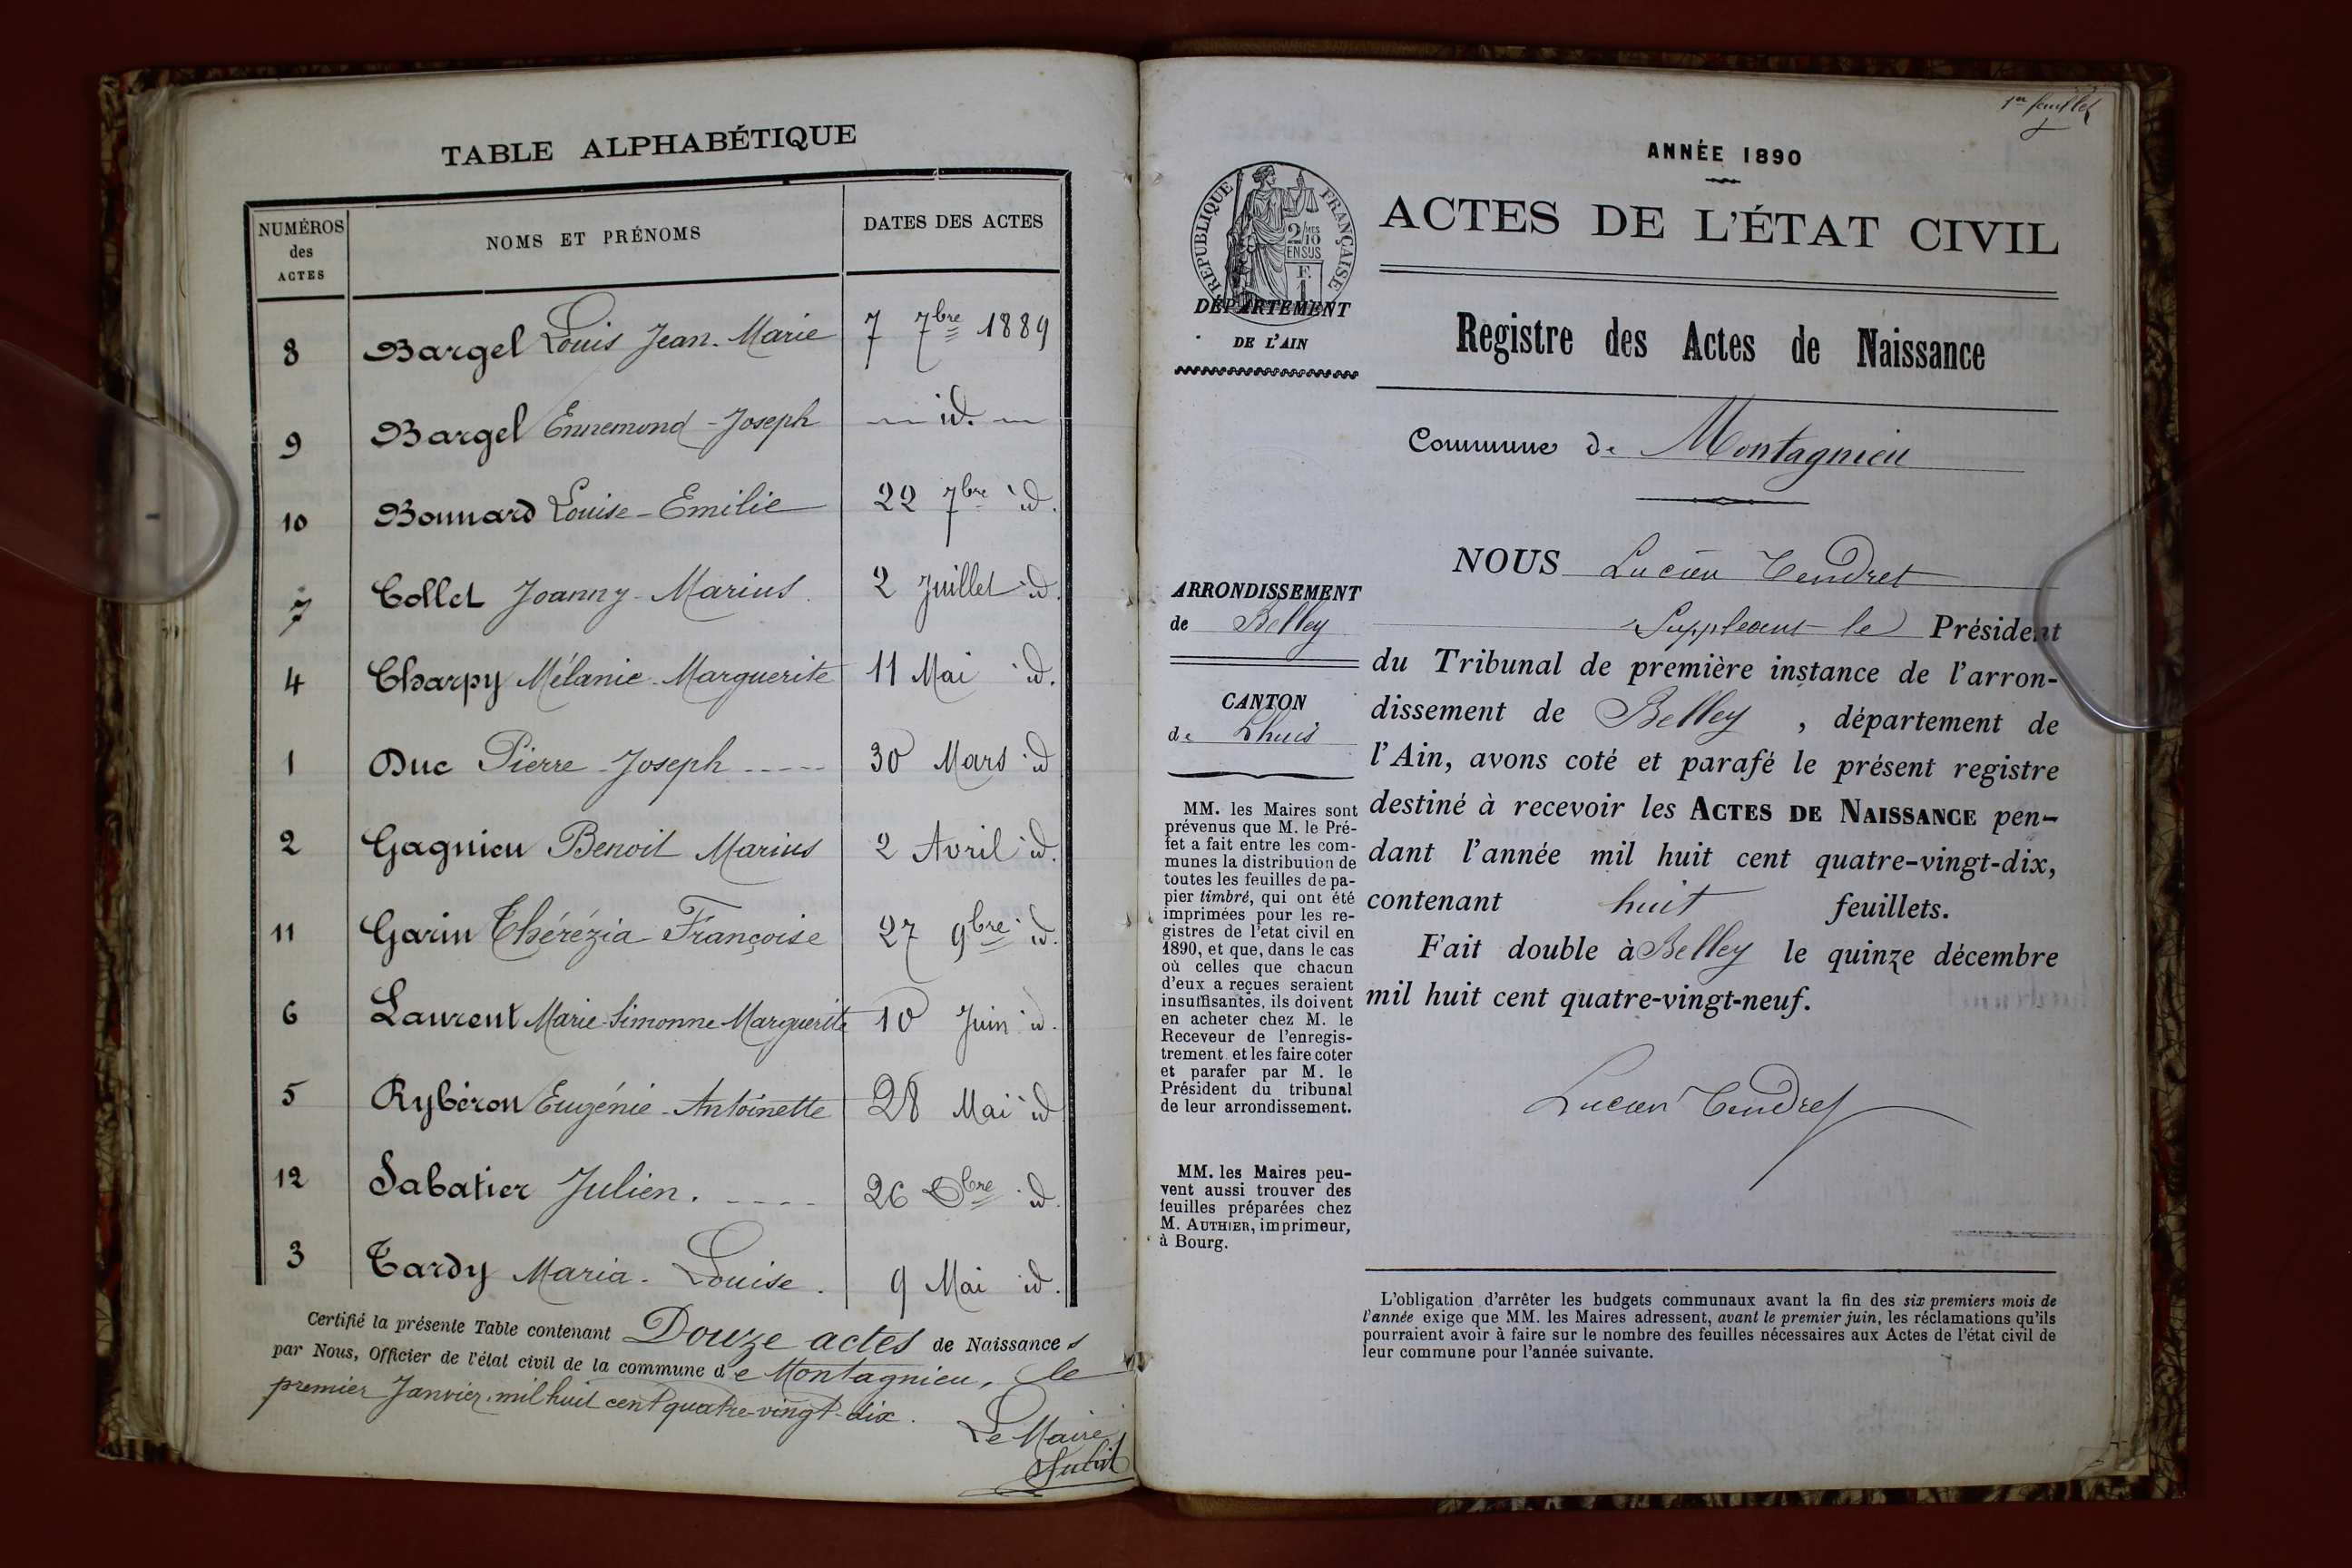 TABLE ALPHABÉTIQUE
NUMÉROS
des
ACTES
NOMS ET PRÉNOMS
DATES DES ACTES
8 Bargel Louis Jean-Marie 7 7bre 1889
9 Bargel Ennemond-Joseph — id. —
10 Bonnard Louise-Emilie 22 7bre id.
7 Collet Joanny-Marius. 2 Juillet id.
4 Charpy Mélanie-Marguerite 11 Mai id.
1 Duc Pierre-Joseph 30 Mars id
2 Gagnieu Benoit Marius 2 Avril id.
11 Garin Thérézia-Françoise 27 9bre id.
6 Laurent Marie-Simonne Marguerite 10 Juin id.
5 Rybéron Eugénie-Antoinette 28 Mai id
12 Sabatier Julien. 26 Xbre id.
3 Tardy Maria-Louise. 9 Mai id.
Certifié la présente Table contenant Douze actes de Naissances
par Nous, Officier de l'état civil de la commune de Montagnieu, le
premier Janvier mil huit cent quatre-vingt-dix.
Le Maire
1er feuillet
ANNÉE 1890
RÉPUBLIQUE FRANÇAISE
2/10MES
EN SUS
F.
1
ACTES DE L'ÉTAT CIVIL
DÉPARTEMENT
DE L'AIN
Registre des Actes de Naissance
Commune de Montagnieu
ARRONDISSEMENT
de Belley
CANTON
de Lhuis
MM. les Maires sont
prévenus que M. le Pré-
fet a fait entre les com-
munes la distribution de
toutes les feuilles de pa-
pier timbré, qui ont été
imprimées pour les re-
gistres de l'état civil en
1890, et que, dans le cas
où celles que chacun
d'eux a reçues seraient
insuffisantes, ils doivent
en acheter chez M. le
Receveur de l'enregis-
trement et les faire coter
et parafer par M. le
Président du tribunal
de leur arrondissement.
MM. les Maires peu-
vent aussi trouver des
feuilles préparées chez
M. AUTHIER, imprimeur,
à Bourg.
NOUS Lucien Tendret
Suppléant le Président
du Tribunal de première instance de l'arron-
dissement de Belley, département de
l'Ain, avons coté et parafé le présent registre
destiné à recevoir les ACTES DE NAISSANCE pen-
dant l'année mil huit cent quatre-vingt-dix,
contenant huit feuillets.
Fait double à Belley le quinze décembre
mil huit cent quatre-vingt-neuf.
Lucien Tendret
L'obligation d'arrêter les budgets communaux avant la fin des six premiers mois de
l'année exige que MM. les Maires adressent, avant le premier juin, les réclamations qu'ils
pourraient avoir à faire sur le nombre des feuilles nécessaires aux Actes de l'état civil de
leur commune pour l'année suivante.